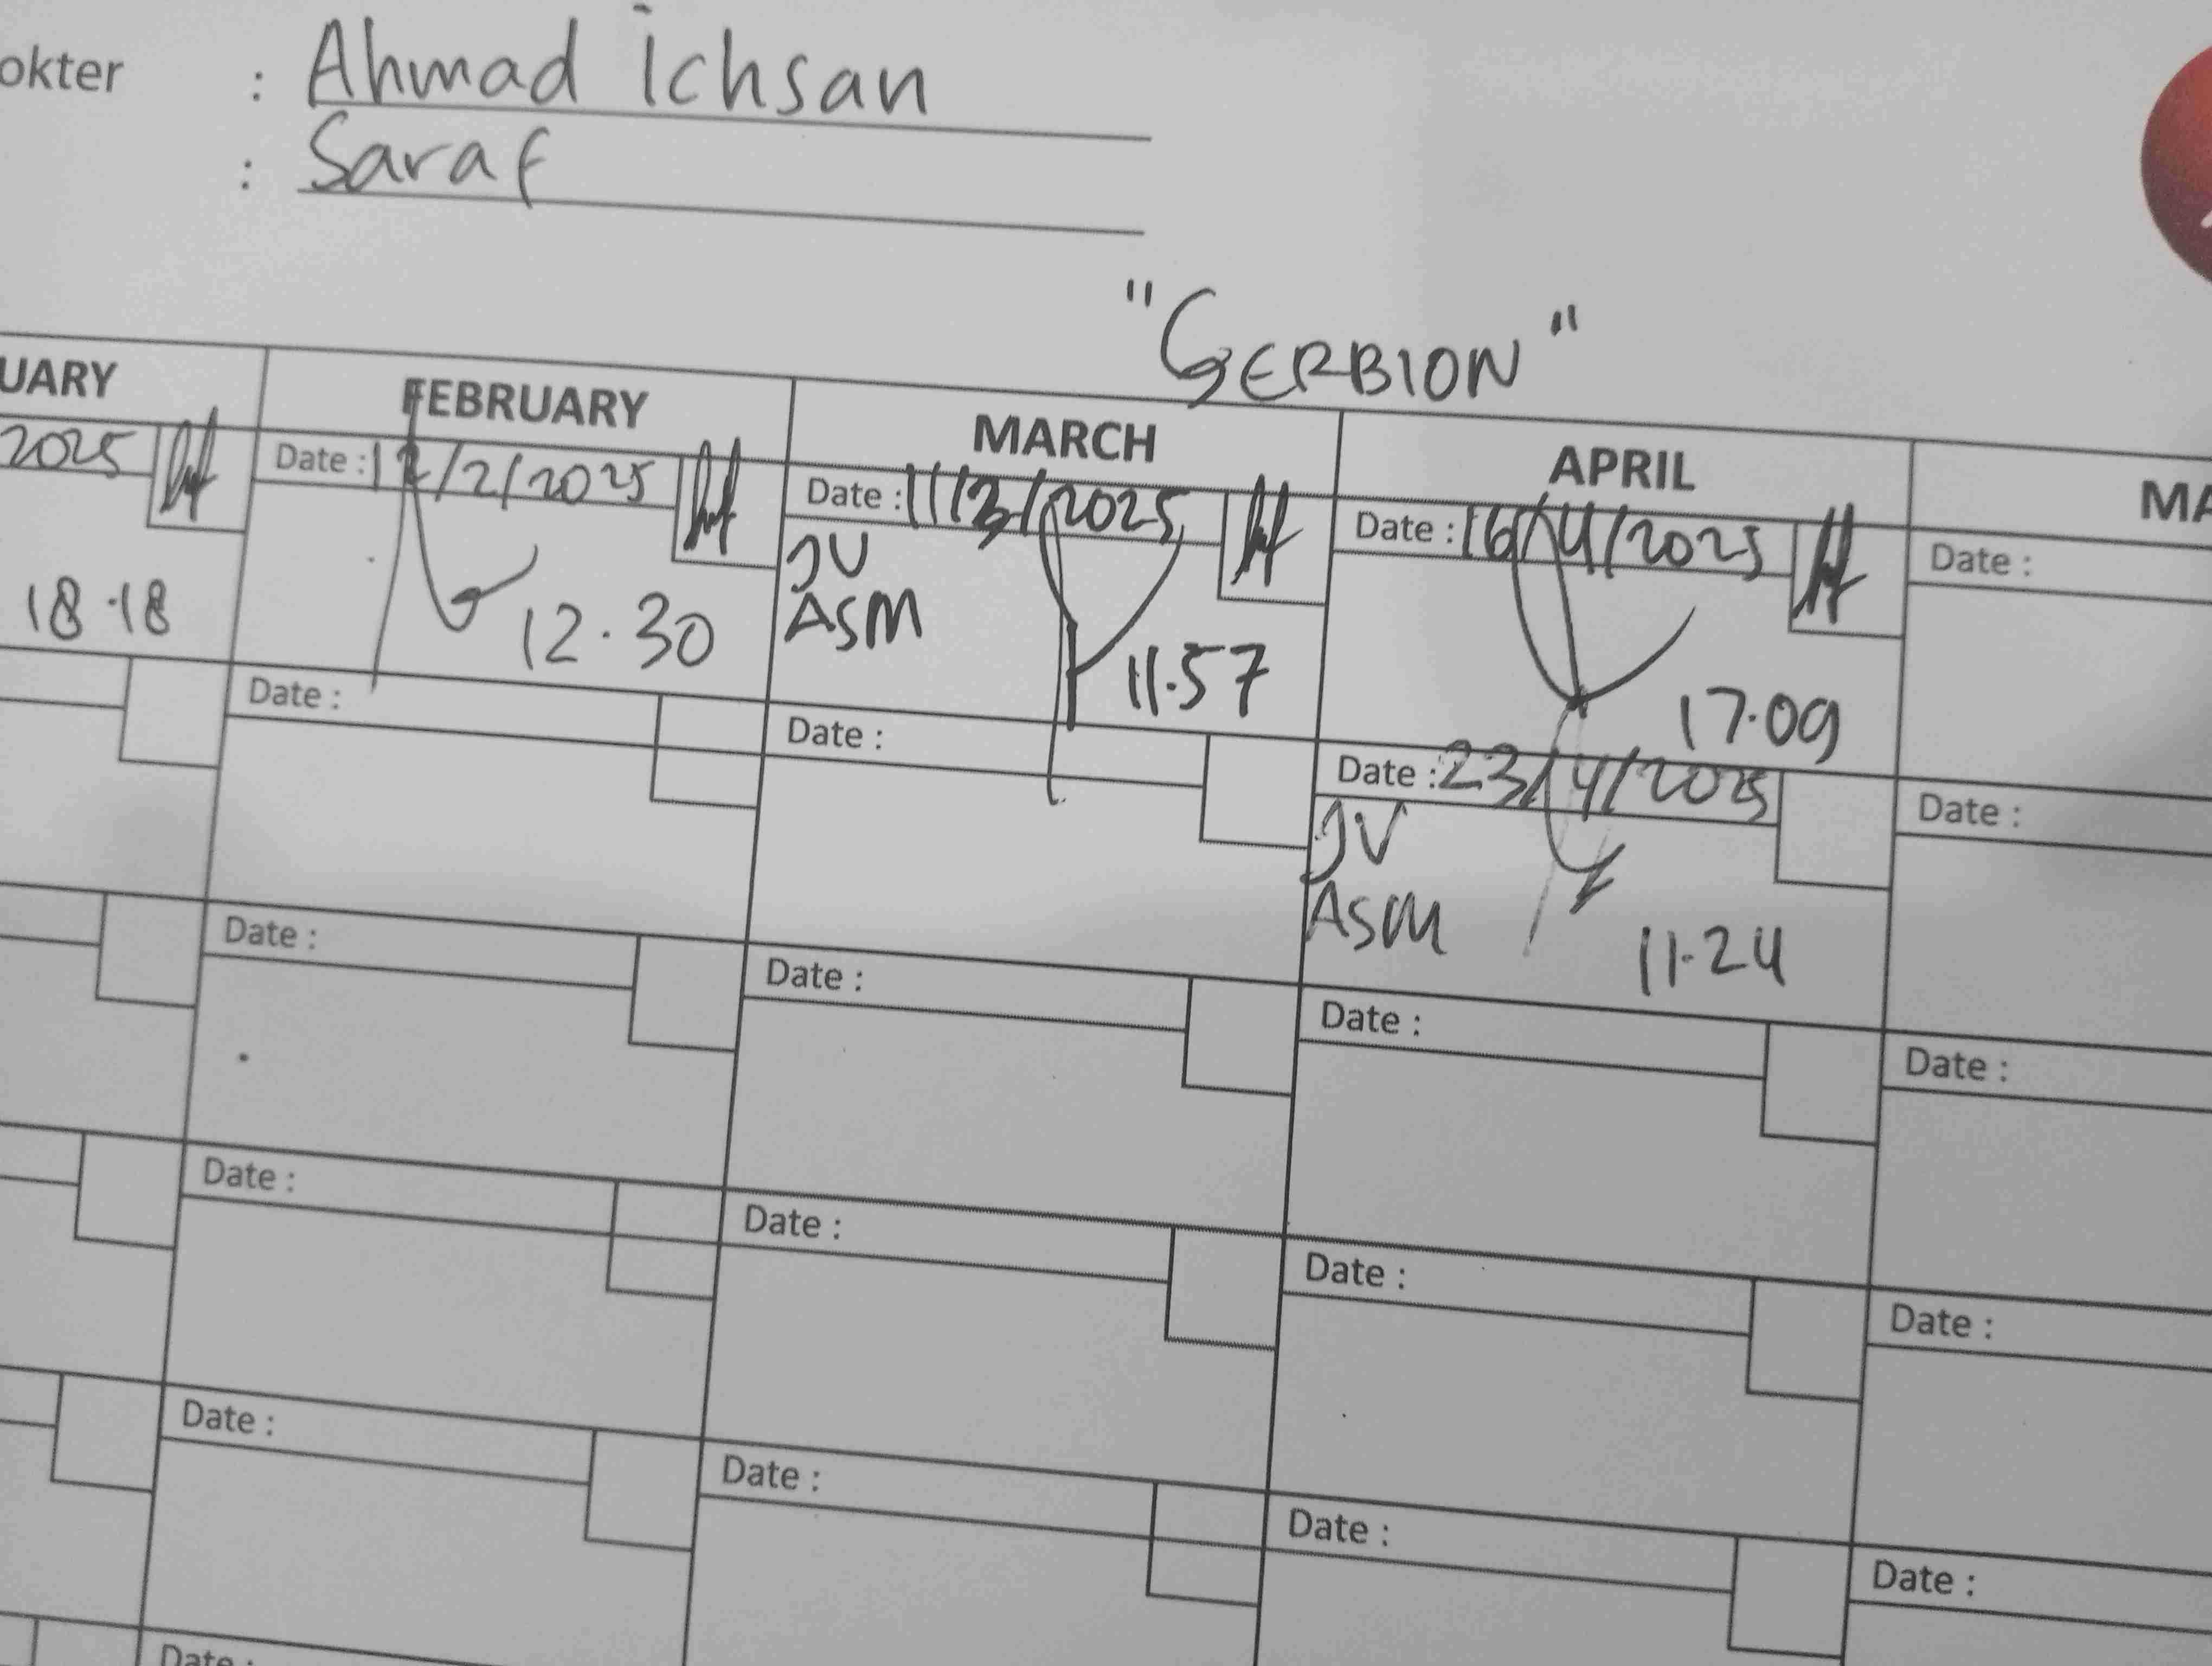 okter : Ahmad Ichsan
: Saraf
"GERBION"
UARY FEBRUARY MARCH APRIL MA
2025 Date : 12/2/2025 Date : 11/3/2025 Date : 16/4/2025 Date :
JV
ASM
18.18 12.30 11.57 17.09
Date : Date : Date : 23/4/2025 Date :
JV
ASM
11.24
Date : Date : Date : Date :
Date : Date : Date : Date :
Date : Date : Date : Date :
Date :